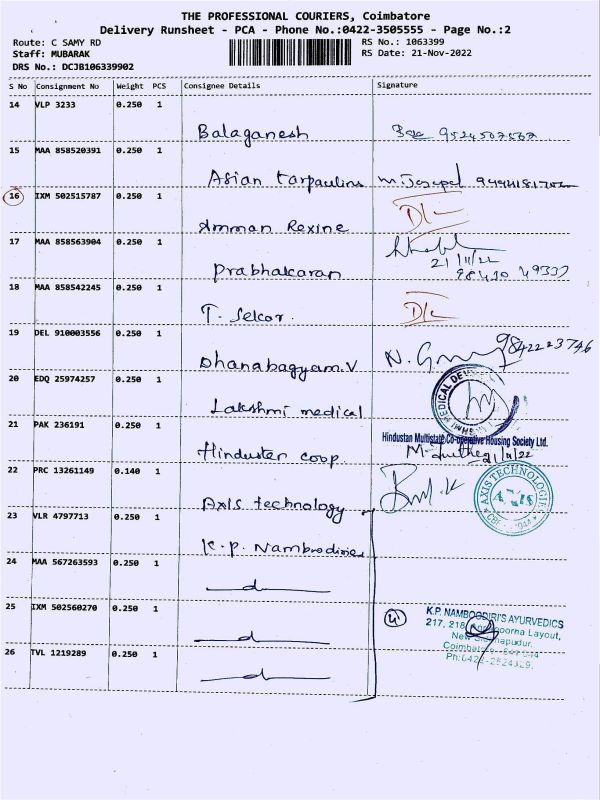 THE PROFESSIONAL COURIERS, Coimbatore
Delivery Runsheet - PCA - Phone No.:0422-3505555 - Page No.:2
Route: C SAMY RD
RS No.: 1063399
Staff: MUBARAK
RS Date: 21-Nov-2022
DRS No.: DCJB106339902
S No Consignment No Weight PCS Consignee Details Signature
14 VLP 3233 0.250 1
Balaganesh 9524507567
15 MAA 858520391 0.250 1
Asian tarpaulins
16 IXM 502515787 0.250 1
Amman Rexine D/c
17 MAA 858563904 0.250 1
Prabhakaran
21/11/22
98410 49337
18 MAA 858542245 0.250 1
T. Selcor. D/c
19 DEL 910003556 0.250 1
Dhanabagyam.V 9842223746
20 EDQ 25974257 0.250 1
Lakshmi medical
21 PAK 236191 0.250 1
Hindustan Multistate Co-operative Housing Society Ltd.
Hinduster coop. 21/11/22
22 PRC 13261149 0.140 1
Axis technology AXIS TECHNOLOGIE
23 VLR 4797713 0.250 1
K.P. Namboodiries
24 MAA 567263593 0.250 1
d
25 IXM 502560270 0.250 1
K.P. NAMBOODIRI'S AYURVEDICS
217, 218, Layout,
d
New
Coimbatore
26 TVL 1219289 0.250 1
Ph:0422-2524329.
d